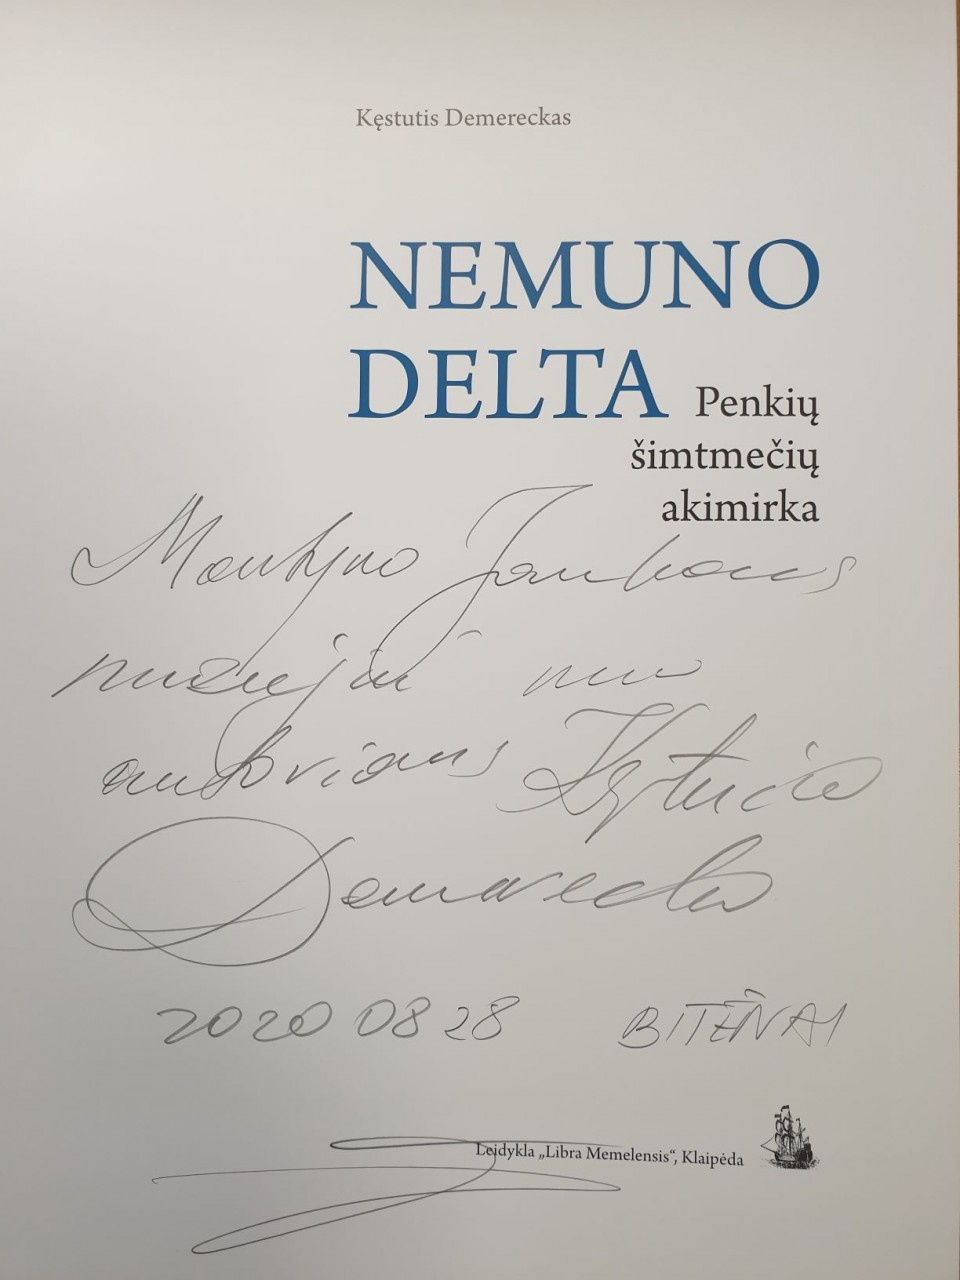 Kęstutis Demereckas
NEMUNO
DELTA Penkių
šimtmečių
akimirka
Martyno Jankaus
muziejui nuo
autoriaus Kęstučio
Demerecko
2020 08 28 BITĖNAI
Leidykla „Libra Memelensis“, Klaipėda